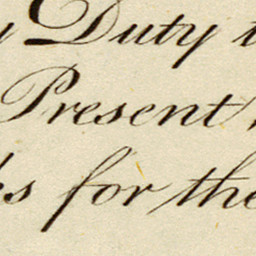 Duty
Present
for the